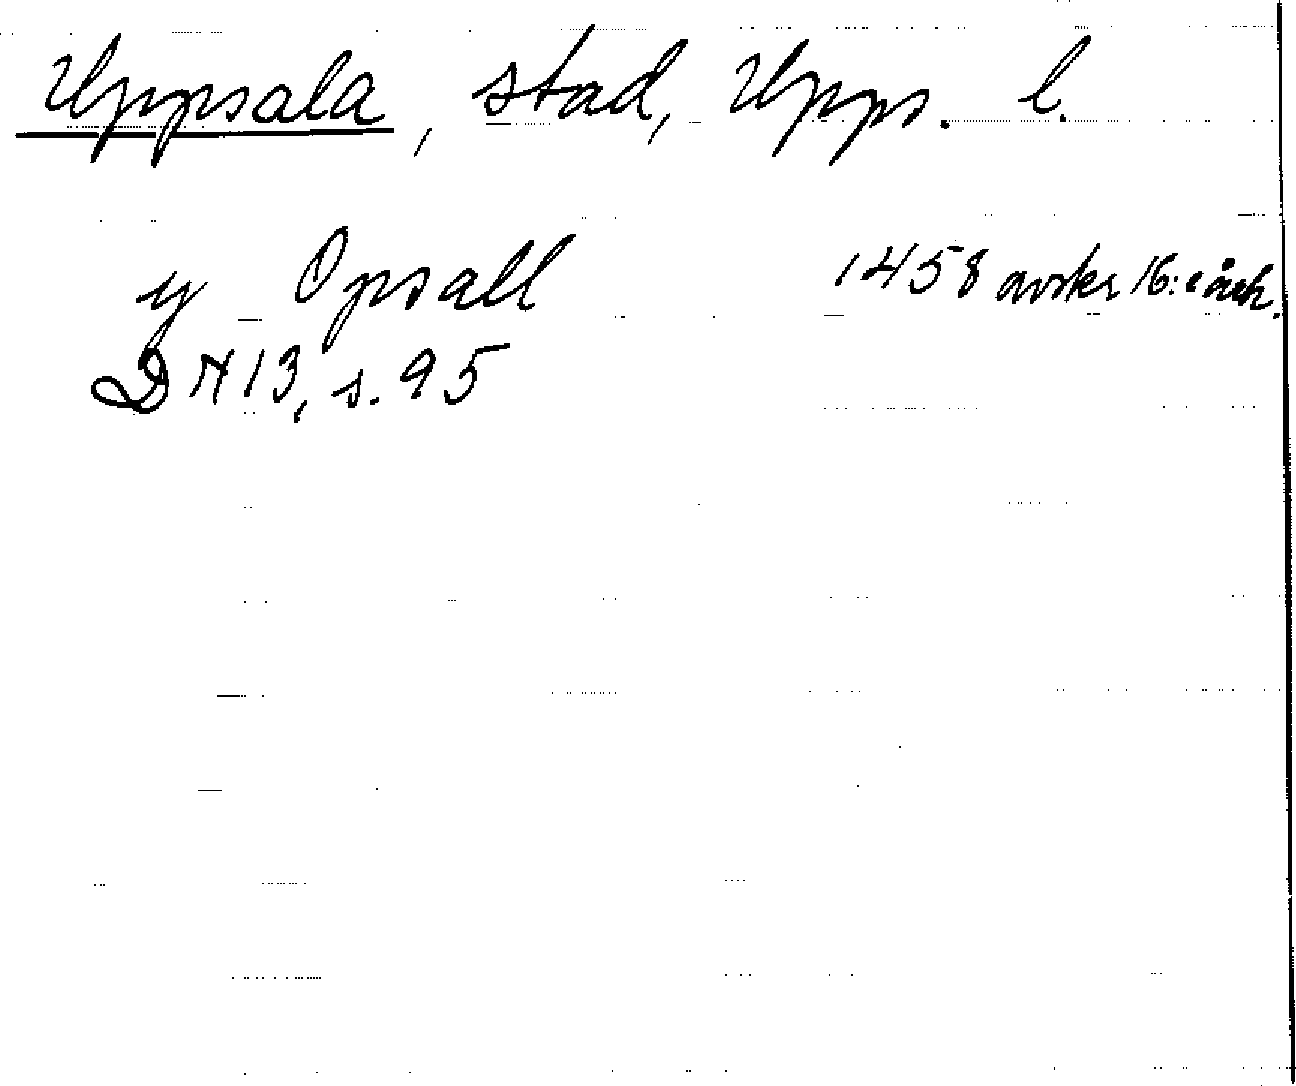 Uppsala, stad, Upps. l.
y Opsall 1458 avskr 16:e årh.
DN 13, s. 95